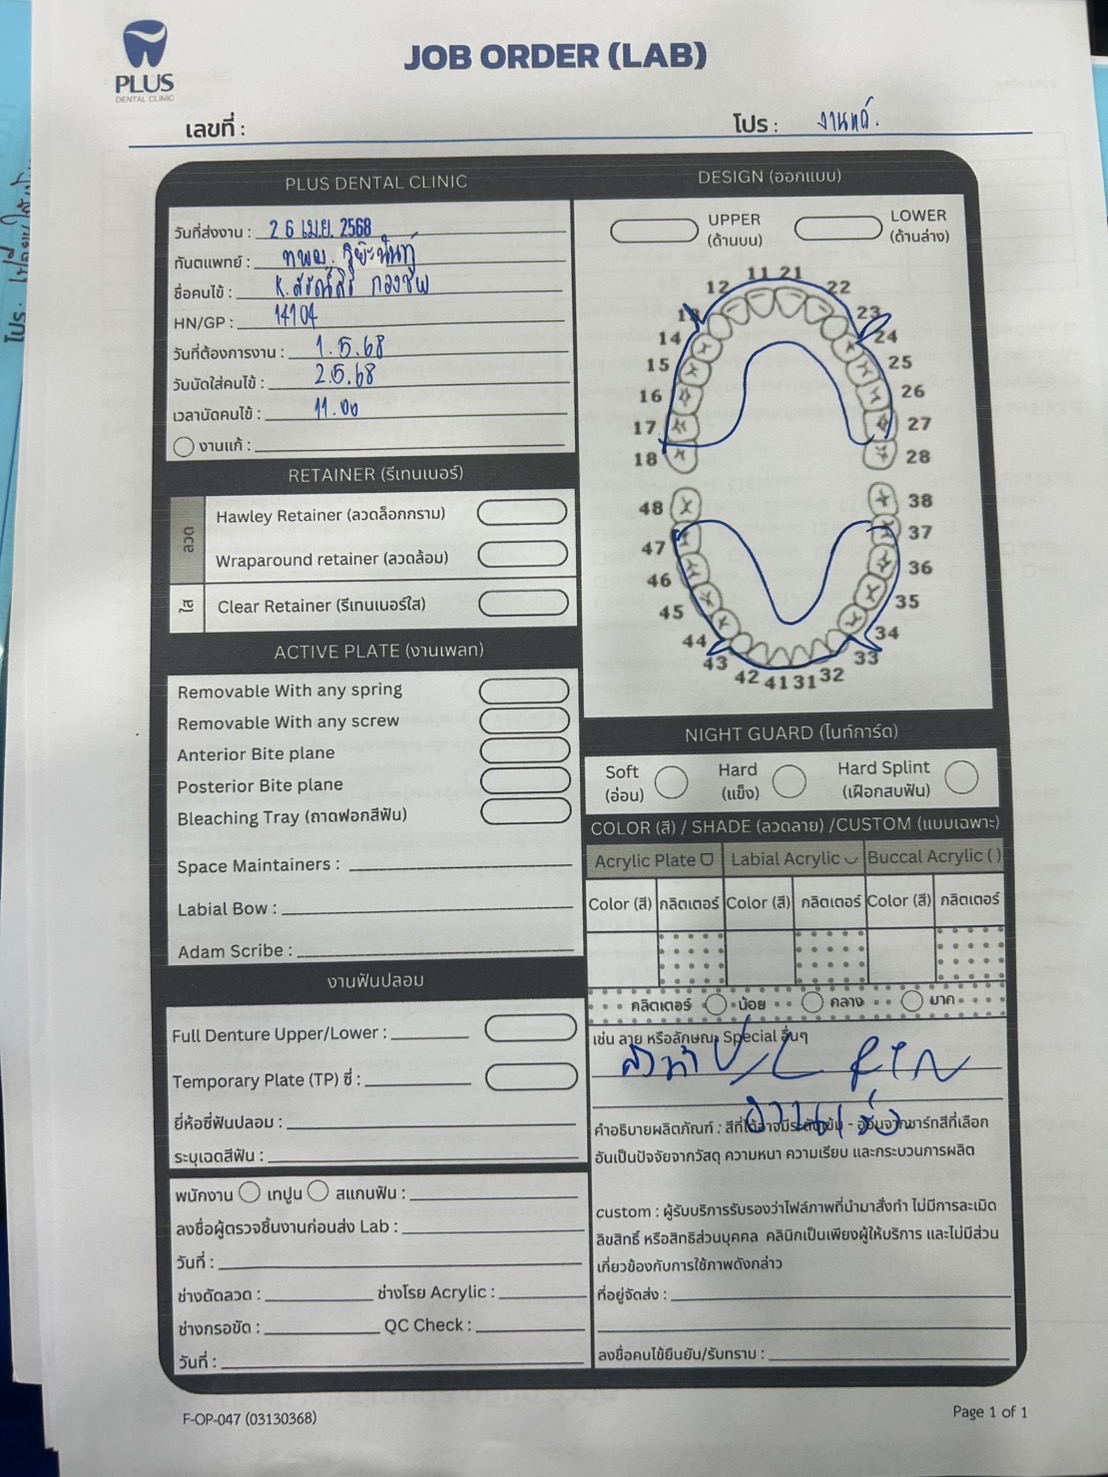 PLUS
DENTAL CLINIC
JOB ORDER (LAB)
เลขที่ :
โปร :
PLUS DENTAL CLINIC
วันที่ส่งงาน : 26 เม.ย. 2568
ทันตแพทย์ : ทพญ.
ชื่อคนไข้ : K.
HN/GP : 14104
วันที่ต้องการงาน : 1.5.68
วันนัดใส่คนไข้ : 2.5.68
เวลานัดคนไข้ : 11.00
งานแก้ :
RETAINER (รีเทนเนอร์)
ลวด
Hawley Retainer (ลวดล็อกกราม)
Wraparound retainer (ลวดล้อม)
ใส
Clear Retainer (รีเทนเนอร์ใส)
ACTIVE PLATE (งานเพลท)
Removable With any spring
Removable With any screw
Anterior Bite plane
Posterior Bite plane
Bleaching Tray (ถาดฟอกสีฟัน)
Space Maintainers :
Labial Bow :
Adam Scribe :
งานฟันปลอม
Full Denture Upper/Lower :
Temporary Plate (TP) ซี่ :
ยี่ห้อซี่ฟันปลอม :
ระบุเฉดสีฟัน :
พนักงาน เทปูน สแกนฟัน :
ลงชื่อผู้ตรวจชิ้นงานก่อนส่ง Lab :
วันที่ :
ช่างดัดลวด : ช่างโรย Acrylic :
ช่างกรอขัด : QC Check :
วันที่ :
DESIGN (ออกแบบ)
UPPER
(ด้านบน)
LOWER
(ด้านล่าง)
11 21
12 22
13 23
14 24
15 25
16 26
17 27
18 28
48 38
47 37
46 36
45 35
44 34
43 33
42 41 31 32
NIGHT GUARD (ไนท์การ์ด)
Soft
(อ่อน)
Hard
(แข็ง)
Hard Splint
(เฝือกสบฟัน)
COLOR (สี) / SHADE (ลวดลาย) /CUSTOM (แบบเฉพาะ)
Acrylic Plate Labial Acrylic Buccal Acrylic ( )
Color (สี) กลิตเตอร์ Color (สี) กลิตเตอร์ Color (สี) กลิตเตอร์
กลิตเตอร์ น้อย กลาง มาก
เช่น ลาย หรือลักษณะ Special อื่นๆ
U/L RTN
คำอธิบายผลิตภัณฑ์ : สีที่ได้อาจมีระดับเข้ม - อ่อนจากชาร์ทสีที่เลือก
อันเป็นปัจจัยจากวัสดุ ความหนา ความเรียบ และกระบวนการผลิต
custom : ผู้รับบริการรับรองว่าไฟล์ภาพที่นำมาสั่งทำ ไม่มีการละเมิด
ลิขสิทธิ์ หรือสิทธิส่วนบุคคล คลินิกเป็นเพียงผู้ให้บริการ และไม่มีส่วน
เกี่ยวข้องกับการใช้ภาพดังกล่าว
ที่อยู่จัดส่ง :
ลงชื่อคนไข้ยืนยัน/รับทราบ :
F-OP-047 (03130368)
Page 1 of 1